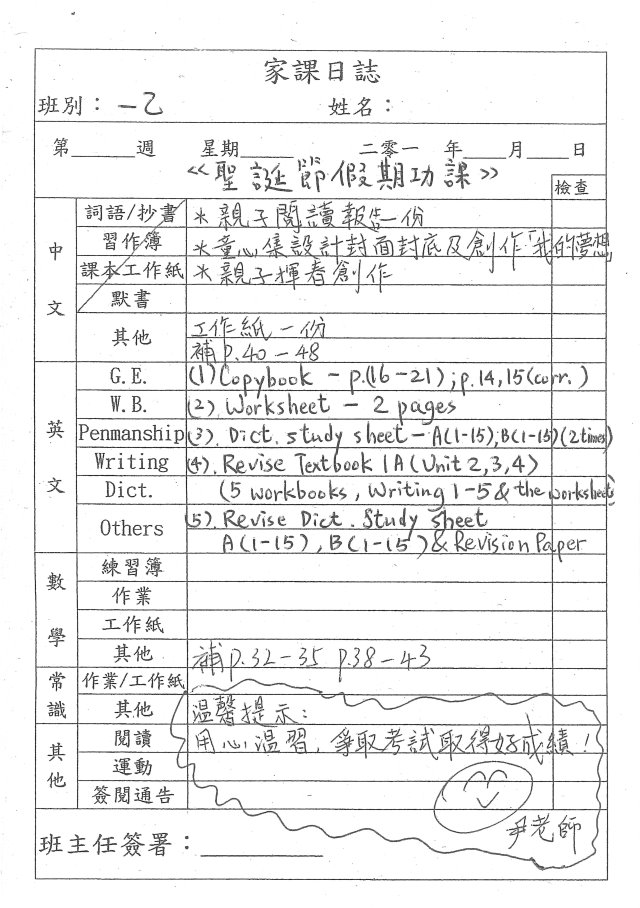 家課日誌
班別：一乙 姓名：
第______週 星期______ 二零一 年____月____日
《聖誕節假期功課》
檢查
中文
詞語/抄書 *親子閱讀報告一份
習作簿 *童心集設計封面封底及創作「我的夢想」
課本工作紙 *親子揮春創作
默書
其他 工作紙一份
補p.40-48
英文
G.E. (1) Copybook - p.(16-21); p.14,15(corr.)
W.B. (2) Worksheet - 2 pages
Penmanship (3). Dict. study sheet - A(1-15); B(1-15)(2times)
Writing (4). Revise Textbook 1A (Unit 2,3,4)
Dict. (5 workbooks, Writing 1-5 & the worksheet)
Others (5). Revise Dict. Study sheet
A(1-15), B(1-15) & Revision Paper
數學
練習簿
作業
工作紙
其他 補p.32-35 p.38-43
常識
作業/工作紙
其他 温馨提示：
其他
閱讀 用心溫習，爭取考試取得好成績！
運動
簽閱通告
尹老師
班主任簽署：__________